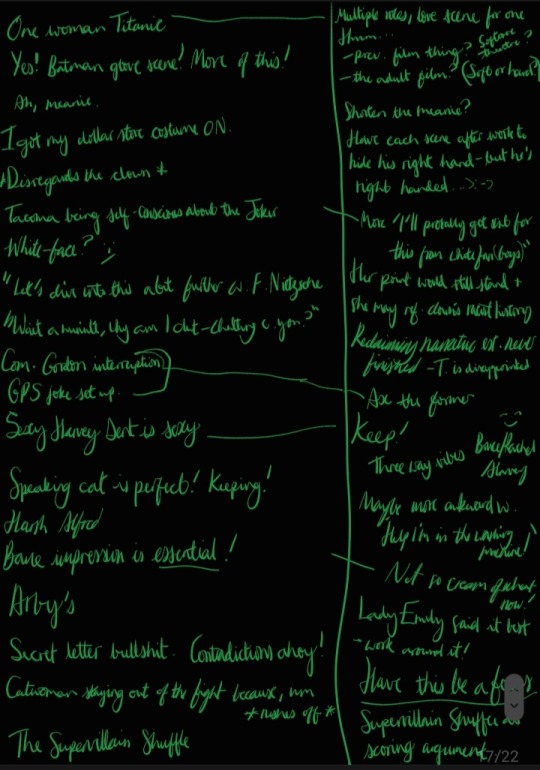 One woman Titanic
Yes! Batman glove scene! More of this!
Ah, meanie.
I got my dollar store costume ON.
*Disregards the clown*
Tacoma being self-conscious about the Joker
White-face?
"Let's dive into this a bit further w. F. Nietzsche
"Wait a minute, why am I chit-chatting c. you?"
Com. Gordon interruption
GPS joke set up.
Sexy Harvey Dent is sexy
Speaking cat is perfect! Keeping!
Harsh Alfred
Bane impression is essential!
Arby's
Secret letter bullshit. Contradictions ahoy!
Catwoman staying out of the fight because, um
*rushes off*
The Supervillain Shuffle
Multiple roles, love scene for one
Hmm...
-prev. film thing?
-the adult film? (Soft or hard?)
Shorten the meanie?
Have each scene after work to
hide his right hand-but he's
right handed...
More "I'll probably get shit for
this from white fan(boys)"
Her point would still stand +
she may rf. clown's racist history
Reclaiming narrative est. never
finished - T. is disappointed
Axe the former
Keep!
Three way vibes
Bruce/Rachel
Harvey
Maybe more awkward w.
"Help I'm in the washing
machine!"
Not so cream of wheat
now!
Lady Emily said it best
-work around it!
Have this be a
Supervillain Shuffle as
scoring argument
17/22